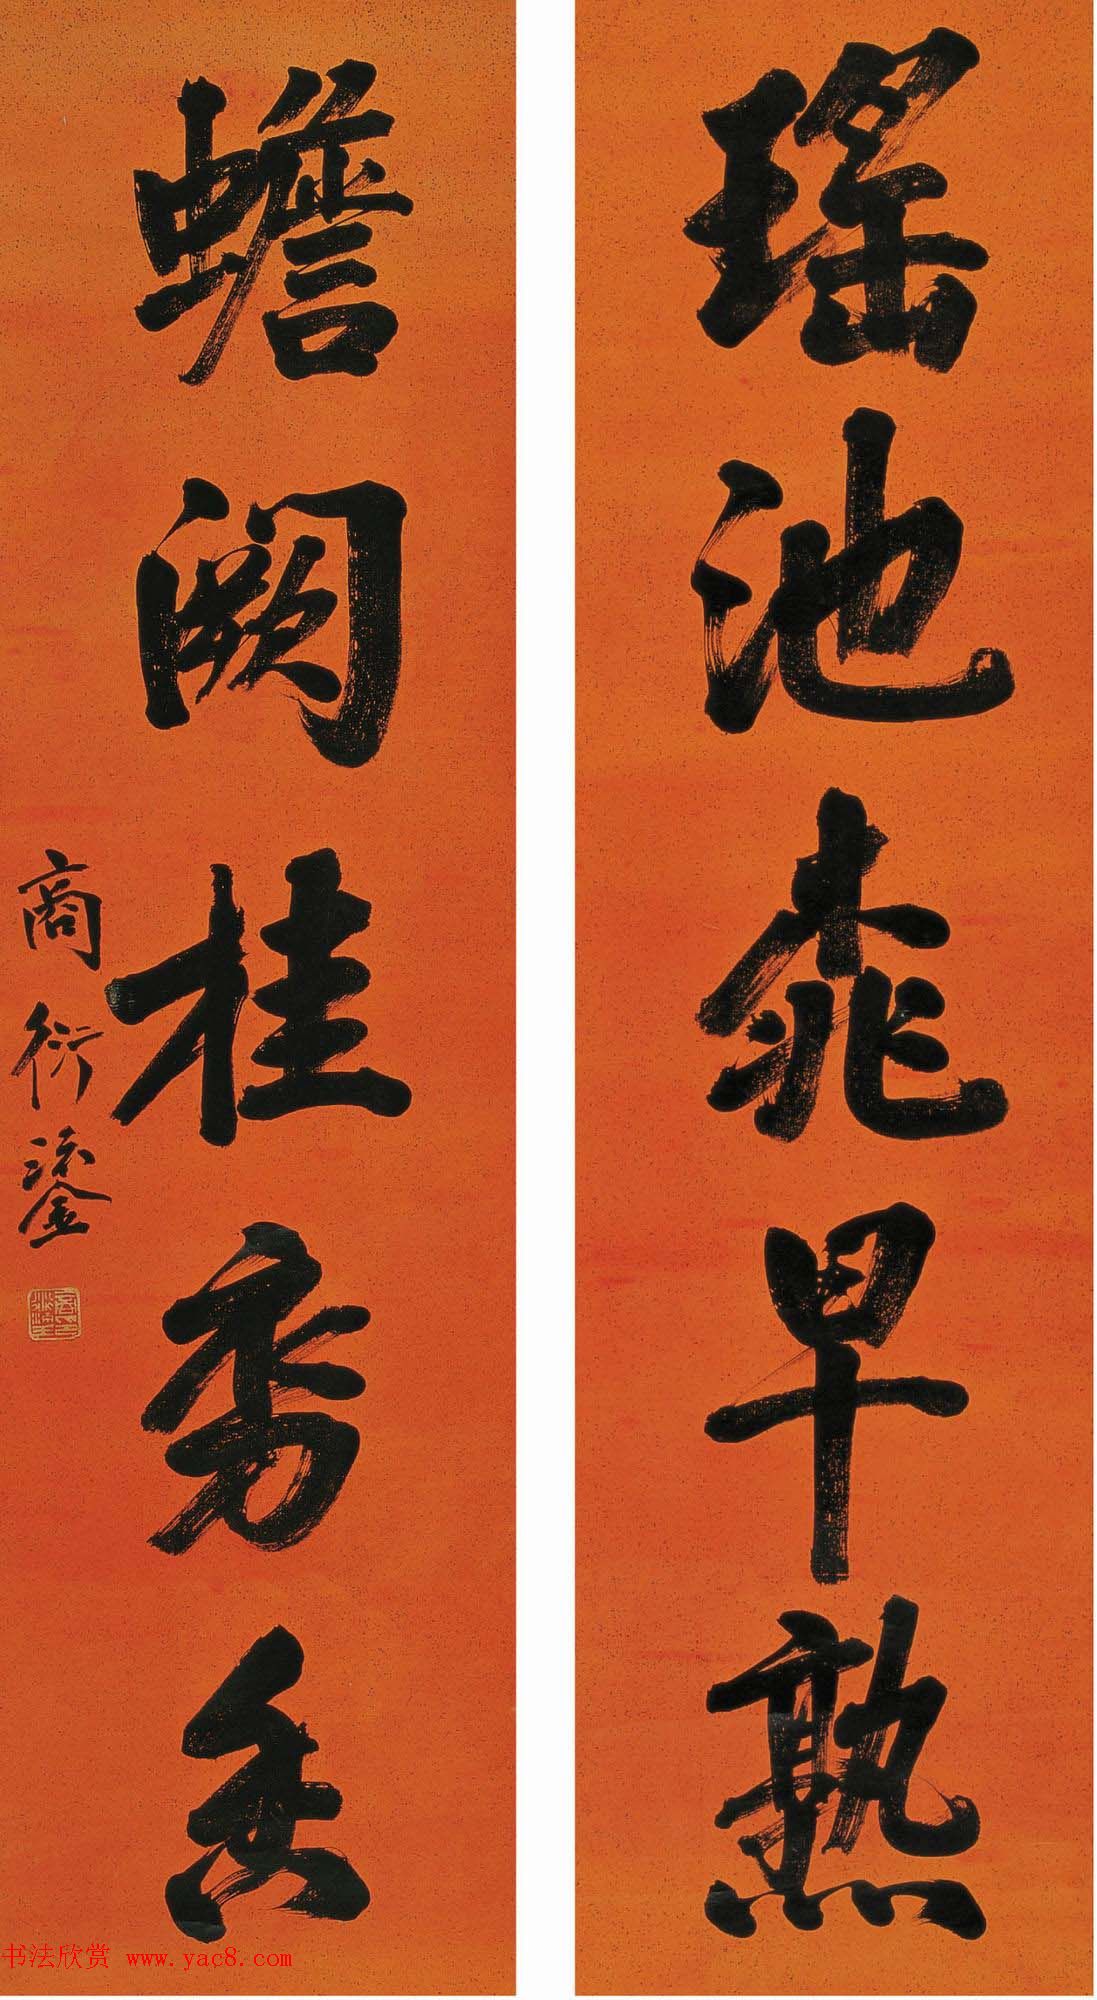 瑤池桃早熟
蟾闕桂秀香
商衍鎏
书法欣赏 www.yac8.com